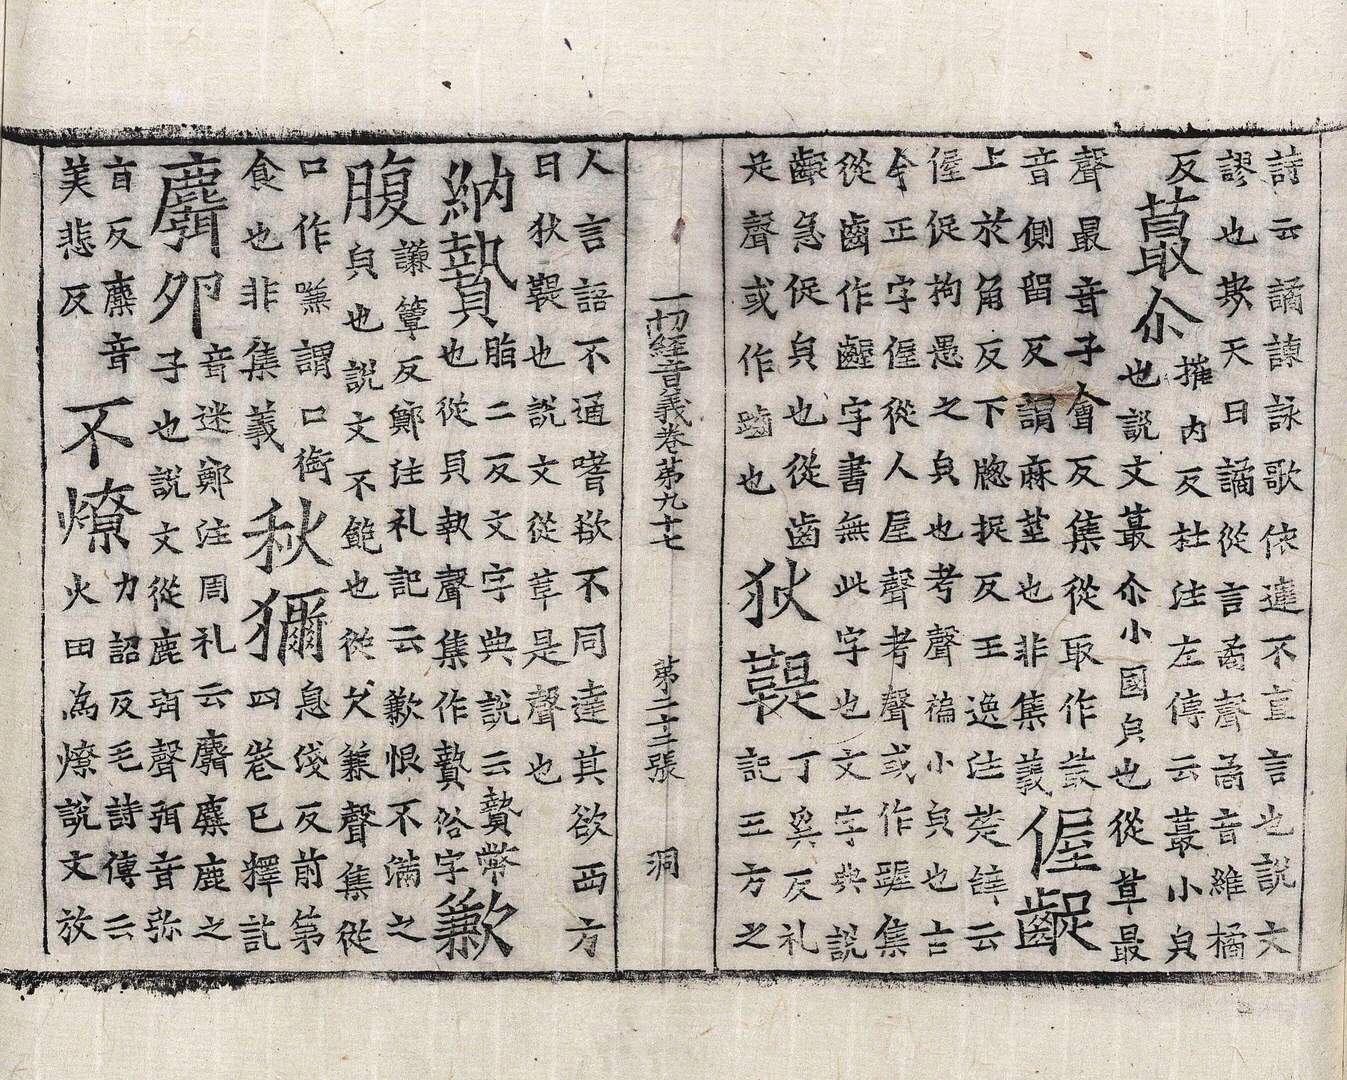 詩云譎諫詠歌依違不直言也說文
謬也欺天曰譎從言矞聲矞音維橘
反
蕞尒
摧內反杜注左傳云蕞小皃
也說文蕞尒小國皃也從草最
聲最音子會反集從取作菆
音側留反又謂麻莖也非集義
偓齪
上於角反下牎捉反王逸注楚辝云
偓促拘愚之皃也考聲褊小皃也古
今正字偓從人屋聲考聲或作齷集
從齒作齷字書無此字也文字典說
齪急促皃也從齒
足聲或作也
狄鞮
丁奚反礼
記三方之
一切經音義卷第九十七 第二十二張 洞
人言語不通嗜欲不同達其欲西方
曰狄鞮也說文從革是聲也
納贄
脂二反文字典說云贄幣
也從貝執聲集作贄俗字
歉腹
謙簟反鄭注礼記云歉恨不滿之
皃也說文不飽也從欠兼聲集從
口作嗛謂口銜
食也非集義
秋獮
息淺反前第
四卷已釋訖
麛卵
音迷鄭注周礼云麛麋鹿之
子也說文從鹿弭聲弭音弥
首反麋音
美悲反
不燎
力詔反毛詩傳云
火田為燎說文放